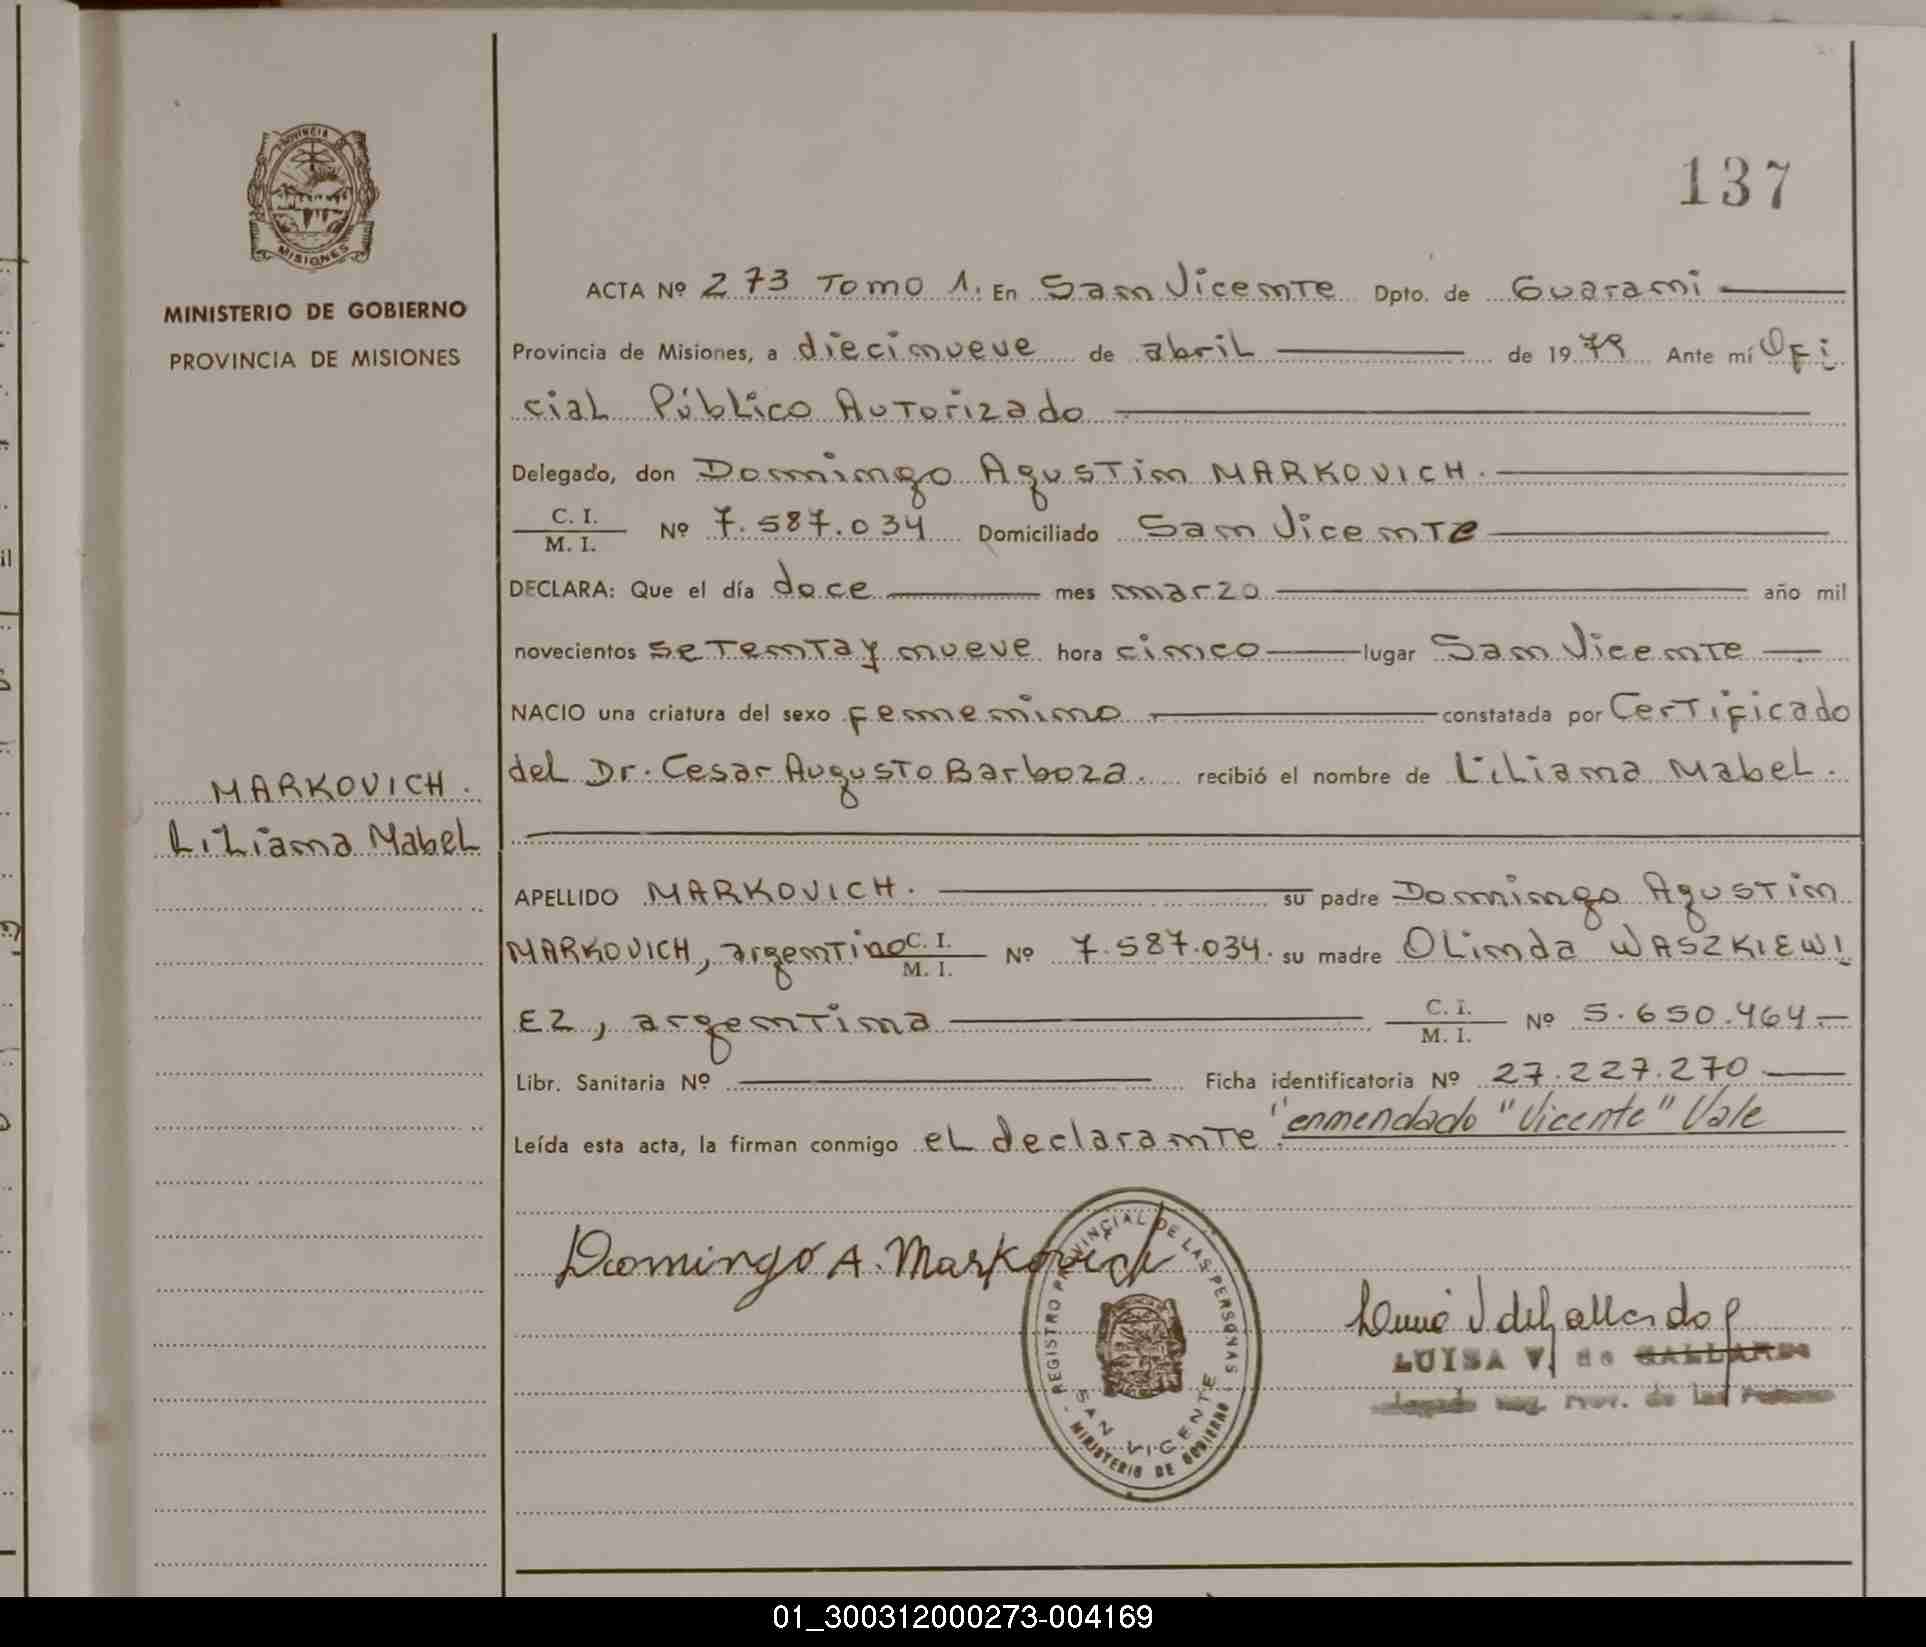 137
PROVINCIA
MISIONES
MINISTERIO DE GOBIERNO
PROVINCIA DE MISIONES
MARKOVICH.
Liliana Mabel
ACTA Nº 273 Tomo 1. En San Vicente Dpto. de Guarani
Provincia de Misiones, a diecinueve de abril de 1979 Ante mí Ofi
cial Público Autorizado
Delegado, don Domingo Agustin MARKOVICH.
C. I.
M. I. Nº 7.587.034 Domiciliado San Vicente
DECLARA: Que el día doce mes marzo año mil
novecientos setenta y nueve hora cinco lugar San Vicente
NACIO una criatura del sexo femenino constatada por Certificado
del Dr. Cesar Augusto Barboza. recibió el nombre de Liliana Mabel.
APELLIDO MARKOVICH. su padre Domingo Agustin
MARKOVICH, argentino C. I. M. I. Nº 7.587.034. su madre Olinda WASZKIEWI
EZ, argentina C. I. M. I. Nº 5.650.464.
Libr. Sanitaria Nº Ficha identificatoria Nº 27.227.270
Leída esta acta, la firman conmigo el declarante. "enmendado "Vicente" Vale
Domingo A. Markovich
REGISTRO PROVINCIAL DE LAS PERSONAS
SAN VICENTE
MINISTERIO DE GOBIERNO
LUISA V. de GALLARDO
01_300312000273-004169